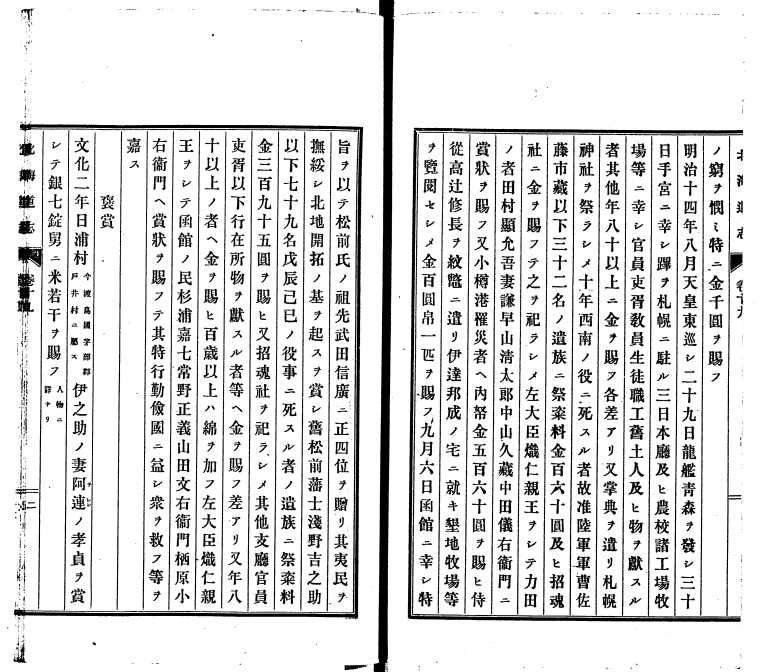 北海道志 卷十九
ノ窮ヲ憫ミ特ニ金千圓ヲ賜フ
明治十四年八月天皇東巡シ二十九日龍艦青森ヲ發シ三十
日手宮ニ幸シ蹕ヲ札幌ニ駐ル三日本廳及ヒ農校諸工場牧
場等ニ幸シ官員吏胥敎員生徒職工舊土人及ヒ物ヲ獻スル
者其他年八十以上ニ金ヲ賜フ各差アリ又掌典ヲ遣リ札幌
神社ヲ祭ラシメ十年西南ノ役ニ死スル者故准陸軍軍曹佐
藤市藏以下三十二名ノ遺族ニ祭粢料金百六十圓及ヒ招魂
社ニ金ヲ賜フテ之ヲ祀ラシメ左大臣熾仁親王ヲシテ力田
ノ者田村顯允吾妻謙早山清太郎中山久藏中田儀右衞門ニ
賞狀ヲ賜フ又小樽港罹災者ヘ內帑金五百六十圓ヲ賜ヒ侍
從高辻修長ヲ紋鼈ニ遣リ伊達邦成ノ宅ニ就キ墾地牧場等
ヲ覽閱セシメ金百圓帛一匹ヲ賜フ九月六日函館ニ幸シ特
旨ヲ以テ松前氏ノ祖先武田信廣ニ正四位ヲ贈リ其夷民ヲ
撫綏シ北地開拓ノ基ヲ起スヲ賞シ舊松前藩士淺野吉之助
以下七十九名戊辰己巳ノ役事ニ死スル者ノ遺族ニ祭粢料
金三百九十五圓ヲ賜ヒ又招魂社ヲ祀ラシメ其他支廳官員
吏胥以下行在所物ヲ獻スル者等ヘ金ヲ賜フ差アリ又年八
十以上ノ者ヘ金ヲ賜ヒ百歲以上ハ綿ヲ加フ左大臣熾仁親
王ヲシテ函館ノ民杉浦嘉七常野正義山田文右衞門栖原小
右衞門ヘ賞狀ヲ賜フテ其特行勤儉國ニ益シ衆ヲ救フ等ヲ
嘉ス
褒賞
文化二年日浦村今渡島國茅部郡戸井村ニ屬ス伊之助ノ妻阿連ノ孝貞ヲ賞
シテ銀七錠舅ニ米若干ヲ賜フ人物ニ詳ナリ
二